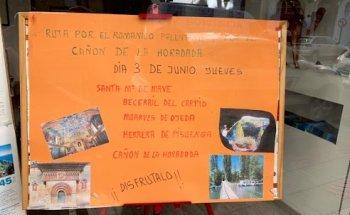 RUTA POR EL ROMANICO
CAÑON DE LA HORADADA
DÍA 3 DE JUNIO JUEVES
SANTA Mª DE MAVE
BECERRIL DEL CARPIO
MOARVES DE OJEDA
HERRERA DE PISUERGA
CAÑON DE LA HORADADA
¡¡ DISFRUTALO !!
45